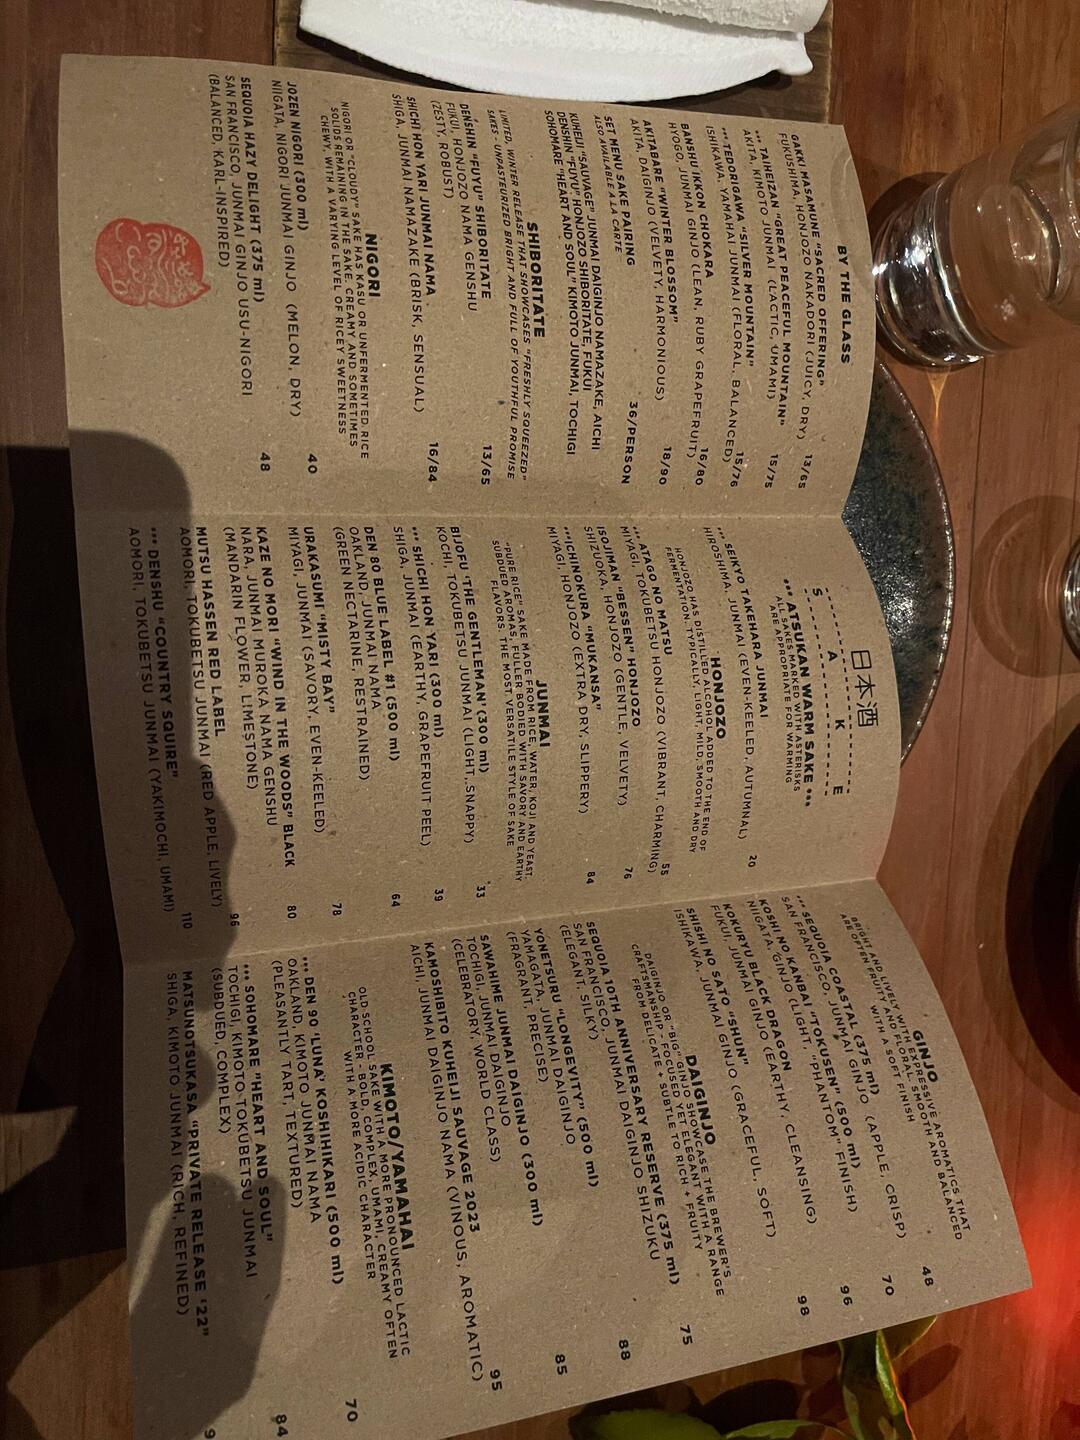 BY THE GLASS
GAKKI MASAMUNE "SACRED OFFERING"
FUKUSHIMA, HONJOZO NAKADORI (JUICY, DRY) 13/65
*** TAIHEIZAN "GREAT PEACEFUL MOUNTAIN"
AKITA, KIMOTO JUNMAI (LACTIC, UMAMI) 15/75
*** TEDORIGAWA "SILVER MOUNTAIN"
ISHIKAWA, YAMAHAI JUNMAI (FLORAL, BALANCED) 15/76
BANSHU IKKON CHOKARA
HYOGO, JUNMAI GINJO (LEAN, RUBY GRAPEFRUIT) 16/80
AKITABARE "WINTER BLOSSOM"
AKITA, DAIGINJO (VELVETY, HARMONIOUS) 18/90
SET MENU SAKE PAIRING 36/PERSON
ALSO AVAILABLE A LA CARTE
KUHEIJI "SAUVAGE" JUNMAI DAIGINJO NAMAZAKE, AICHI
DENSHIN "FUYU" HONJOZO SHIBORITATE, FUKUI
SOHOMARE "HEART AND SOUL" KIMOTO JUNMAI, TOCHIGI
SHIBORITATE
LIMITED, WINTER RELEASE THAT SHOWCASES "FRESHLY SQUEEZED"
SAKES - UNPASTEURIZED BRIGHT AND FULL OF YOUTHFUL PROMISE
DENSHIN "FUYU" SHIBORITATE 13/65
FUKUI, HONJOZO NAMA GENSHU
(ZESTY, ROBUST)
SHICHI HON YARI JUNMAI NAMA 16/84
SHIGA, JUNMAI NAMAZAKE (BRISK, SENSUAL)
NIGORI
NIGORI OR "CLOUDY" SAKE HAS KASU OR UNFERMENTED RICE
SOLIDS REMAINING IN THE SAKE. CREAMY AND SOMETIMES
CHEWY, WITH A VARYING LEVEL OF RICEY SWEETNESS
JOZEN NIGORI (300 ml) 40
NIIGATA, NIGORI JUNMAI GINJO (MELON, DRY)
SEQUOIA HAZY DELIGHT (375 ml) 48
SAN FRANCISCO, JUNMAI GINJO USU-NIGORI
(BALANCED, KARL-INSPIRED)
日本酒
S A K E
*** ATSUKAN WARM SAKE ***
ALL SAKES MARKED WITH ASTERISKS
ARE APPROPRIATE FOR WARMING
*** SEIKYO TAKEHARA JUNMAI 20
HIROSHIMA, JUNMAI (EVEN-KEELED, AUTUMNAL)
HONJOZO
HONJOZO HAS DISTILLED ALCOHOL ADDED TO THE END OF
FERMENTATION. TYPICALLY, LIGHT, MILD, SMOOTH AND DRY
*** ATAGO NO MATSU 55
MIYAGI, TOKUBETSU HONJOZO (VIBRANT, CHARMING)
ISOJIMAN "BESSEN" HONJOZO 76
SHIZUOKA, HONJOZO (GENTLE, VELVETY)
***ICHINOKURA "MUKANSA" 84
MIYAGI, HONJOZO (EXTRA DRY, SLIPPERY)
JUNMAI
"PURE RICE" SAKE MADE FROM RICE, WATER, KOJI AND YEAST.
SUBDUED AROMAS, FULLER BODIED WITH SAVORY AND EARTHY
FLAVORS. THE MOST VERSATILE STYLE OF SAKE
BIJOFU 'THE GENTLEMAN' (300 ml) 33
KOCHI, TOKUBETSU JUNMAI (LIGHT, SNAPPY)
*** SHICHI HON YARI (300 ml) 39
SHIGA, JUNMAI (EARTHY, GRAPEFRUIT PEEL)
DEN 80 BLUE LABEL #1 (500 ml) 64
OAKLAND, JUNMAI NAMA
(GREEN NECTARINE, RESTRAINED)
URAKASUMI "MISTY BAY" 78
MIYAGI, JUNMAI (SAVORY, EVEN-KEELED)
KAZE NO MORI "WIND IN THE WOODS" BLACK 80
NARA, JUNMAI MUROKA NAMA GENSHU
(MANDARIN FLOWER, LIMESTONE)
MUTSU HASSEN RED LABEL 96
AOMORI, TOKUBETSU JUNMAI (RED APPLE, LIVELY)
*** DENSHU "COUNTRY SQUIRE" 110
AOMORI, TOKUBETSU JUNMAI (YAKIMOCHI, UMAMI)
GINJO
BRIGHT AND LIVELY WITH EXPRESSIVE AROMATICS THAT
ARE OFTEN FRUITY AND FLORAL. SMOOTH AND BALANCED
WITH A SOFT FINISH
*** SEQUOIA COASTAL (375 ml) 48
SAN FRANCISCO, JUNMAI GINJO (APPLE, CRISP)
KOSHI NO KANBAI "TOKUSEN" (500 ml) 70
NIIGATA, GINJO (LIGHT, "PHANTOM" FINISH)
KOKURYU BLACK DRAGON 96
FUKUI, JUNMAI GINJO (EARTHY, CLEANSING)
SHISHI NO SATO "SHUN" 98
ISHIKAWA, JUNMAI GINJO (GRACEFUL, SOFT)
DAIGINJO
DAIGINJO OR "BIG" GINJO SHOWCASE THE BREWER'S
CRAFTSMANSHIP - FOCUSED YET ELEGANT WITH A RANGE
FROM DELICATE + SUBTLE TO RICH + FRUITY
SEQUOIA 10TH ANNIVERSARY RESERVE (375 ml) 75
SAN FRANCISCO, JUNMAI DAIGINJO SHIZUKU
(ELEGANT, SILKY)
YONETSURU "LONGEVITY" (500 ml) 88
YAMAGATA, JUNMAI DAIGINJO
(FRAGRANT, PRECISE)
SAWAHIME JUNMAI DAIGINJO (300 ml) 85
TOCHIGI, JUNMAI DAIGINJO
(CELEBRATORY, WORLD CLASS)
KAMOSHIBITO KUHEIJI SAUVAGE 2023 95
AICHI, JUNMAI DAIGINJO NAMA (VINOUS, AROMATIC)
KIMOTO/YAMAHAI
OLD SCHOOL SAKE WITH A MORE PRONOUNCED LACTIC
CHARACTER - BOLD, COMPLEX, UMAMI, CREAMY OFTEN
WITH A MORE ACIDIC CHARACTER
*** DEN 90 'LUNA' KOSHIHIKARI (500 ml) 70
OAKLAND, KIMOTO JUNMAI NAMA
(PLEASANTLY TART, TEXTURED)
*** SOHOMARE "HEART AND SOUL" 84
TOCHIGI, KIMOTO TOKUBETSU JUNMAI
(SUBDUED, COMPLEX)
MATSUNOTSUKASA "PRIVATE RELEASE '22"
SHIGA, KIMOTO JUNMAI (RICH, REFINED)